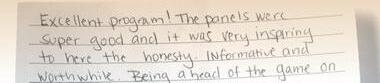 Excellent program! The panels were
super good and it was very inspiring
to here the honesty. Informative and
worthwhile. Being ahead of the game on